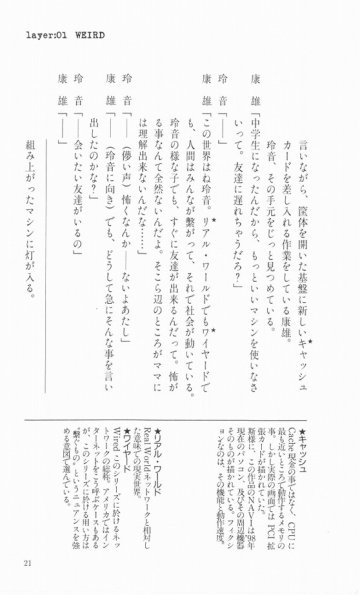 layer:01 WEIRD
言いながら、筐体を開いた基盤に新しいキャッシュ
カードを差し入れる作業をしている康雄。
玲音、その手元をじっと見つめている。
康 雄「中学生になったんだから、もっといいマシンを使いなさ
いって。友達に遅れちゃうだろ?」
玲 音「――」
康 雄「この世界はね玲音。リアル・ワールドでもワイヤードで
も、人間はみんなが繋がって、それで社会が動いている。
玲音の様な子でも、すぐに友達が出来るんだって。怖が
る事なんて全然ないんだよ。そこら辺のところがママに
は理解出来ないんだな……」
玲 音「――(儚い声)怖くなんか――ないよあたし」
康 雄「――(玲音に向き)でも、どうして急にそんな事を言い
出したのかな?」
玲 音「――会いたい友達がいるの」
康 雄「――」
組み上がったマシンに灯が入る。
★キャッシュ
Cache 現金の事ではなく、CPUに
最も近いところで動作するメモリの
事。しかし実際の画面では PCI 拡
張カードが描かれていた。
斯様に、この作品のNAVIは'98年
現在のパソコン、及びその周辺機器
そのものが描かれている。フィクシ
ョンなのは、その機能と動作速度。
★リアル・ワールド
Real World ネットワークと相対し
た意味での現実世界。
★ワイヤード
Wired このシリーズに於けるネッ
トワークの総称。アメリカではイン
ターネットをこう呼ぶケースもある
が、このシリーズに於ける用い方は
“繋ぐもの”というニュアンスを強
める意図で選んでいる。
21